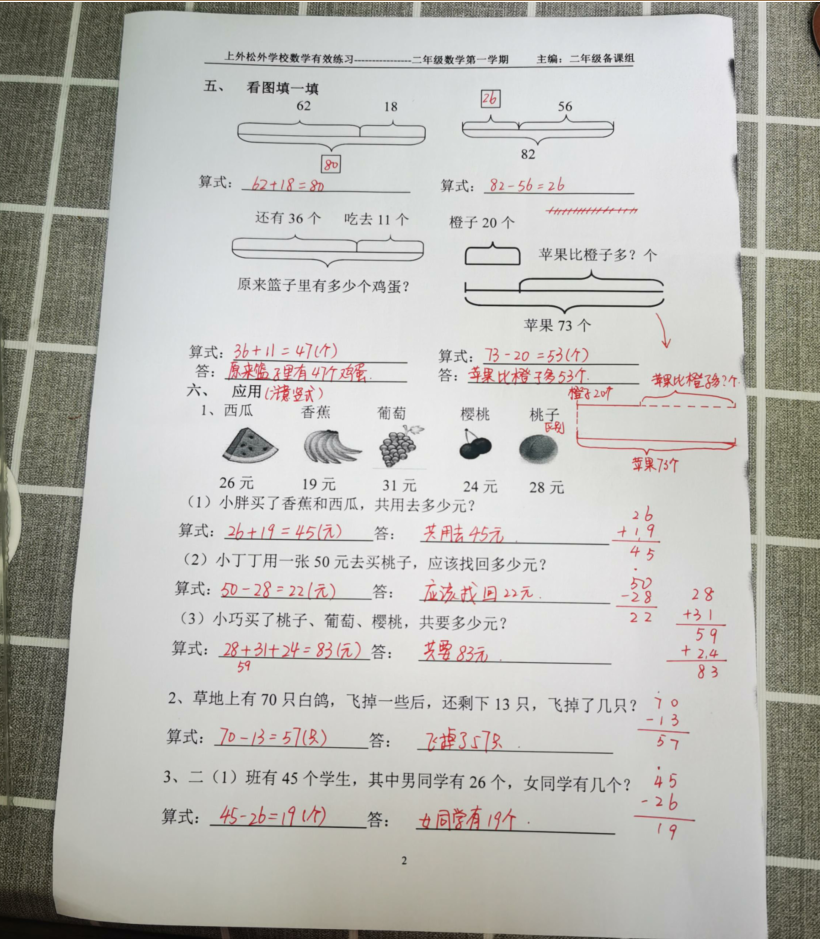 上外松外学校数学有效练习----------------二年级数学第一学期 主编：二年级备课组
五、 看图填一填
62 18 26 56
80 82
算式：62+18=80 算式：82-56=26
还有36个 吃去11个 橙子20个
苹果比橙子多？个
原来篮子里有多少个鸡蛋？
苹果73个
算式：36+11=47(个) 算式：73-20=53(个)
答：原来篮子里有47个鸡蛋. 答：苹果比橙子多53个.
橙子20个 苹果比橙子多?个
苹果73个
六、 应用(注意竖式)
1、西瓜 香蕉 葡萄 樱桃 桃子
区别
26元 19元 31元 24元 28元
（1）小胖买了香蕉和西瓜，共用去多少元？
算式：26+19=45(元) 答：共用去45元.
26
+19
45
（2）小丁丁用一张50元去买桃子，应该找回多少元？
算式：50-28=22(元) 答：应该找回22元.
50
-28
22
（3）小巧买了桃子、葡萄、樱桃，共要多少元？
算式：28+31+24=83(元) 答：共要83元.
59
28
+31
59
+24
83
2、草地上有70只白鸽，飞掉一些后，还剩下13只，飞掉了几只？
算式：70-13=57(只) 答：飞掉了57只.
70
-13
57
3、二（1）班有45个学生，其中男同学有26个，女同学有几个？
算式：45-26=19(个) 答：女同学有19个.
45
-26
19
2